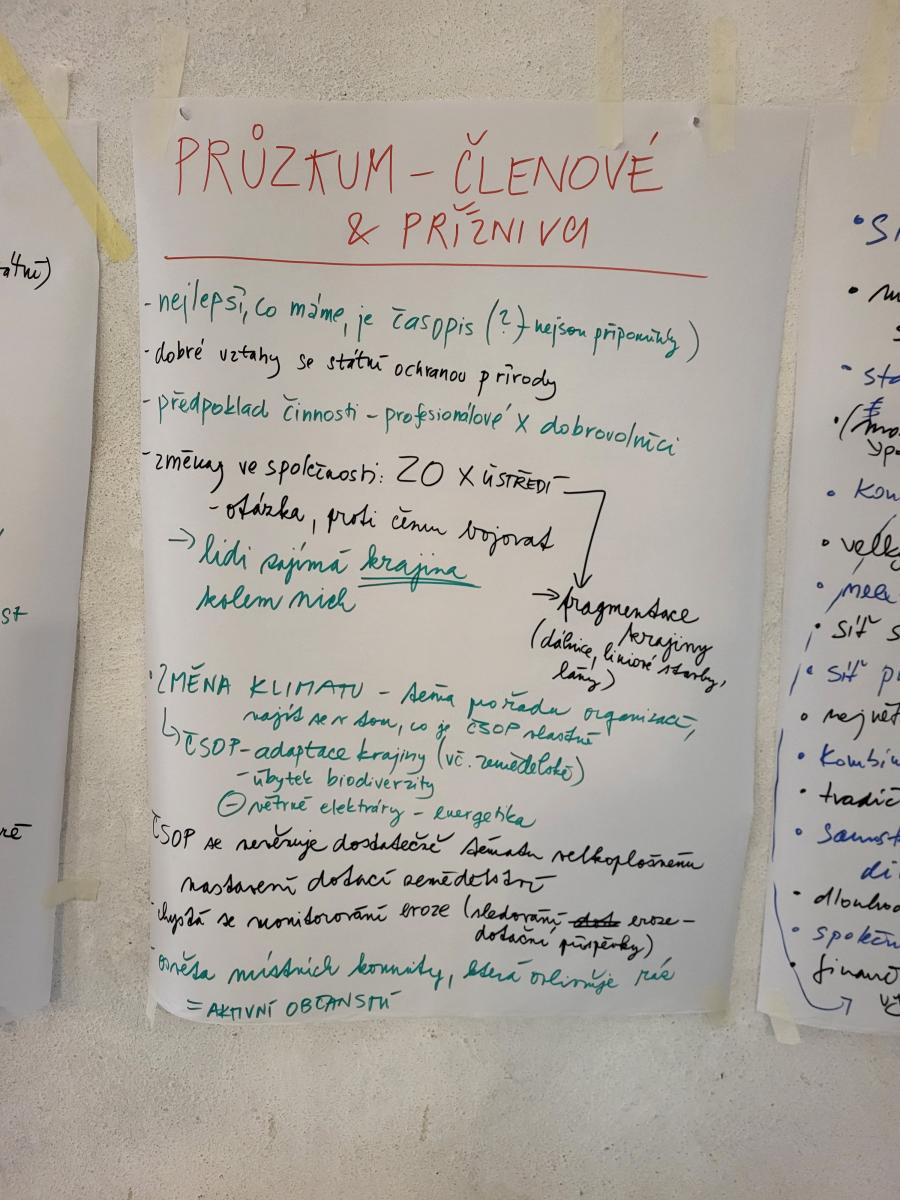 PRŮZKUM – ČLENOVÉ
& PŘÍZNIVCI
- nejlepší, co máme, je časopis (? - nejsou připomínky)
- dobré vztahy se státní ochranou přírody
- předpoklad činnosti – profesionálové X dobrovolníci
- změny ve společnosti: ZO X ÚSTŘEDÍ
- otázka, proti čemu bojovat
→ lidi zajímá krajina
kolem nich
→ fragmentace
krajiny
(dálnice, liniové stavby,
lány)
• ZMĚNA KLIMATU – téma pořádu organizací,
najít se v tom, co je ČSOP vlastně
ČSOP – adaptace krajiny (vč. zemědělské)
- úbytek biodiverzity
⊖ větrné elektrárny – energetika
ČSOP se nevěnuje dostatečně tématu velkoplošnému
nastavení dotací zemědělství
chystá se monitorování eroze (sledování eroze –
dotační příspěvky)
osvěta místních komunity, která ovlivňuje
= AKTIVNÍ OBČANSTVÍ
átní)
st
• velk
• síť s
• síť p
• největ
• Kombin
• tradič
• Samost
di
• dlouho
• společn
• financ